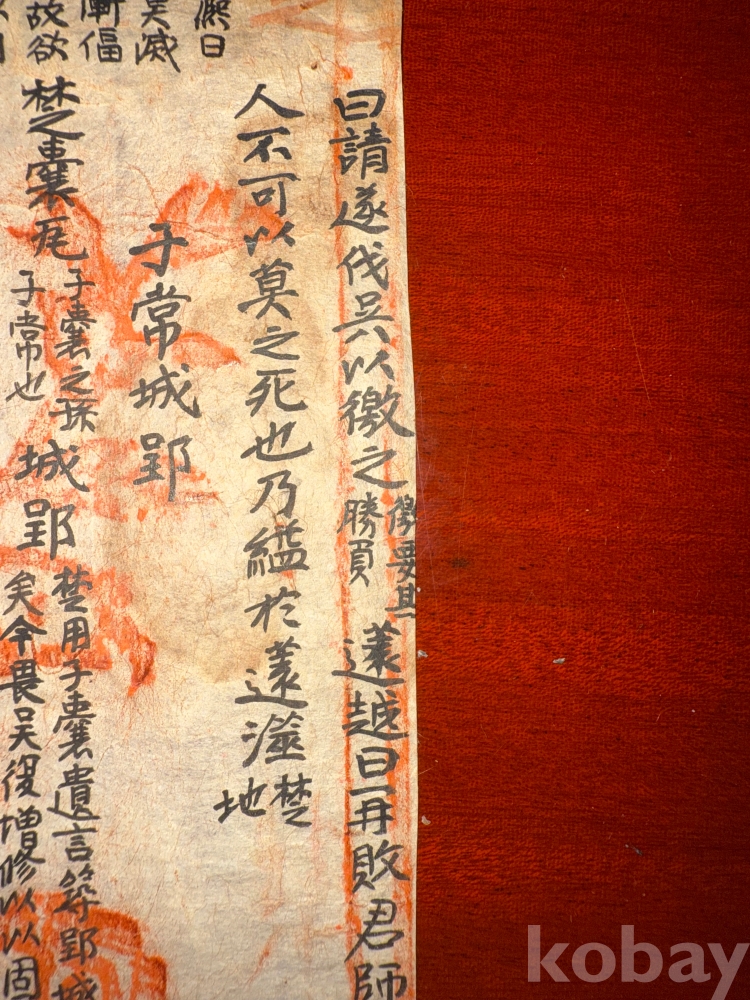 曰請遂伐吳以徼之徼要其勝負薳越曰再敗君師
人不可以莫之死也乃縊於薳澨楚地
㷩日
子常城郢
吳滅
漸偪
楚囊瓦子囊之孫子常也城郢楚用子囊遺言築郢城矣今畏吳復增修以以固
故欲
kobay